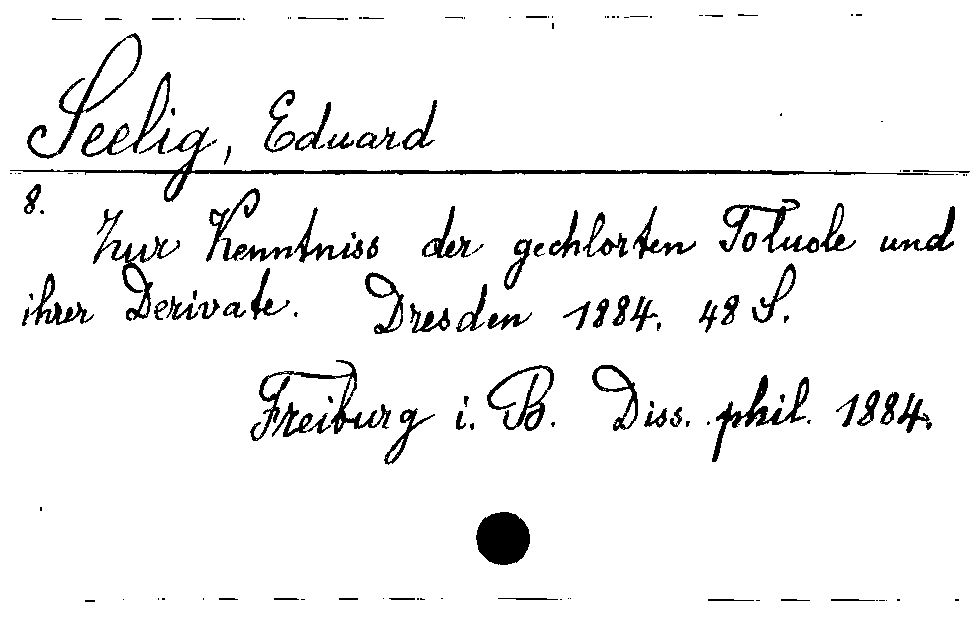 Seelig, Eduard
8.
Zur Kenntniss der gechlorten Toluole und
ihrer Derivate. Dresden 1884. 48 S.
Freiburg i. B. Diss. phil. 1884.